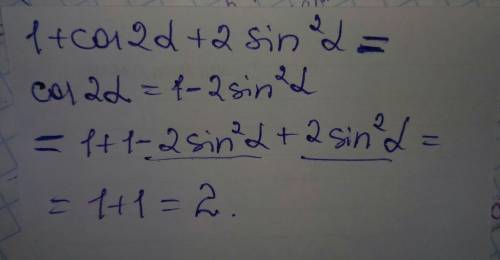 1+cos2α+2 sin²α=
cos2α=1-2sin²α
=1+1-2sin²α+2sin²α=
=1+1=2.